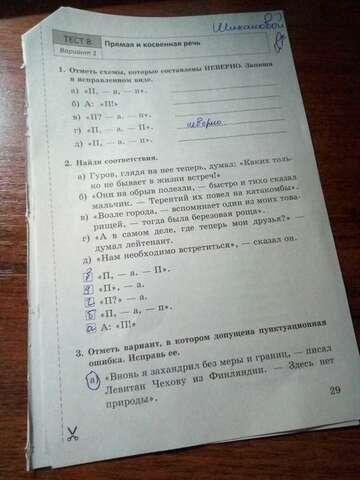 Шихановой
ТЕСТ 8
Вариант 1
Прямая и косвенная речь
1. Отметь схемы, которые составлены НЕВЕРНО. Запиши
в исправленном виде.
а) «П, — а, — п».
б) А: «П!»
в) «П? — а. — п».
г) «П, — а. — П». неверно
д) «П, — а. — П».
2. Найди соответствия.
а) Гуров, глядя на нее теперь, думал: «Каких толь-
ко не бывает в жизни встреч!»
б) «Они на обрыв полезли, — быстро и тихо сказал
мальчик. — Терентий их повел на катакомбы».
в) «Возле города, — вспоминает один из моих това-
рищей, — тогда была березовая роща».
г) «А в самом деле, где теперь мои друзья?» —
думал лейтенант.
д) «Нам необходимо встретиться», — сказал он.
«П, — а. — П».
«П», — а.
г «П?» — а.
б «П, — а, — п».
а А: «П!»
3. Отметь вариант, в котором допущена пунктуационная
ошибка. Исправь ее.
а) «Вновь я захандрил без меры и границ, — писал
Левитан Чехову из Финляндии. — Здесь нет
природы».
29